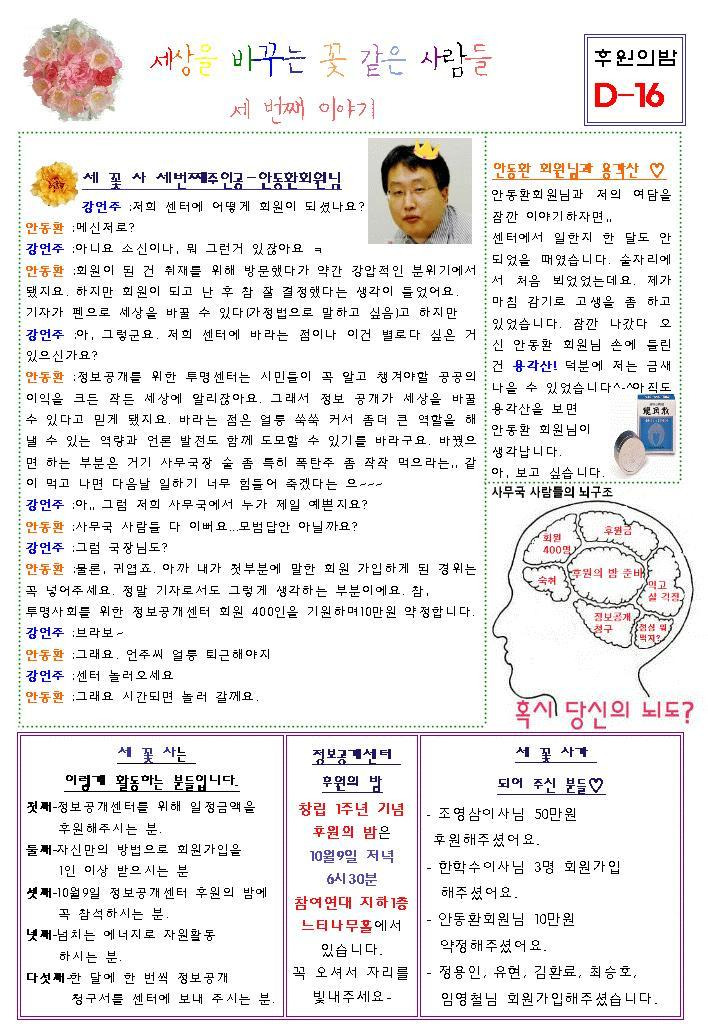 세상을 바꾸는 꽃 같은 사람들
세 번째 이야기
후원의밤
D-16
세 꽃 사 세번째주인공-안동환회원님
강언주 :저희 센터에 어떻게 회원이 되셨나요?
안동환 :메신저로?
강언주 :아니요 소신이나, 뭐 그런거 있잖아요 ㅋ
안동환 :회원이 된 건 취재를 위해 방문했다가 약간 강압적인 분위기에서
됐지요. 하지만 회원이 되고 난 후 참 잘 결정했다는 생각이 들었어요.
기자가 펜으로 세상을 바꿀 수 있다(가정법으로 말하고 싶음)고 하지만
강언주 :아, 그렇군요. 저희 센터에 바라는 점이나 이건 별로다 싶은 거
있으신가요?
안동환 :정보공개를 위한 투명센터는 시민들이 꼭 알고 챙겨야할 공공의
이익을 크든 작든 세상에 알리잖아요. 그래서 정보 공개가 세상을 바꿀
수 있다고 믿게 됐지요. 바라는 점은 얼릉 쑥쑥 커서 좀더 큰 역할을 해
낼 수 있는 역량과 언론 발전도 함께 도모할 수 있기를 바라구요. 바꿨으
면 하는 부분은 거기 사무국장 술 좀 특히 폭탄주 좀 작작 먹으라는,, 같
이 먹고 나면 다음날 일하기 너무 힘들어 죽겠다는 으~~~
강언주 :아,, 그럼 저희 사무국에서 누가 제일 예쁜지요?
안동환 :사무국 사람들 다 이뻐요...모범답안 아닐까요?
강언주 :그럼 국장님도?
안동환 :물론, 귀엽죠. 아까 내가 첫부분에 말한 회원 가입하게 된 경위는
꼭 넣어주세요. 정말 기자로서도 그렇게 생각하는 부분이에요. 참,
투명사회를 위한 정보공개센터 회원 400인을 기원하며10만원 약정합니다.
강언주 :브라보~
안동환 :그래요. 언주씨 얼릉 퇴근해야지
강언주 :센터 놀러오세요
안동환 :그래요 시간되면 놀러 갈께요.
안동환 회원님과 용각산 ♡
안동환회원님과 저의 여담을
잠깐 이야기하자면,,
센터에서 일한지 한 달도 안
되었을 때였습니다. 술자리에
서 처음 뵈었었는데요. 제가
마침 감기로 고생을 좀 하고
있었습니다. 잠깐 나갔다 오
신 안동환 회원님 손에 들린
건 용각산! 덕분에 저는 금새
나을 수 있었습니다^-^아직도
용각산을 보면
안동환 회원님이
생각납니다.
아, 보고 싶습니다.
사무국 사람들의 뇌구조
회원
400명
후원금
숙취
후원의 밤 준비
먹고
살 걱정
정보공개
청구
점심 뭐
먹지?
혹시 당신의 뇌도?
세 꽃 사는
이렇게 활동하는 분들입니다.
첫째-정보공개센터를 위해 일정금액을
후원해주시는 분.
둘째-자신만의 방법으로 회원가입을
1인 이상 받으시는 분
셋째-10월9일 정보공개센터 후원의 밤에
꼭 참석하시는 분.
넷째-넘치는 에너지로 자원활동
하시는 분.
다섯째-한 달에 한 번씩 정보공개
청구서를 센터에 보내 주시는 분.
정보공개센터
후원의 밤
창립 1주년 기념
후원의 밤은
10월9일 저녁
6시30분
참여연대 지하1층
느티나무홀에서
있습니다.
꼭 오셔서 자리를
빛내주세요~
세 꽃 사가
되어 주신 분들♡
- 조영삼이사님 50만원
후원해주셨어요.
- 한학수이사님 3명 회원가입
해주셨어요.
- 안동환회원님 10만원
약정해주셨어요.
- 정용인, 유현, 김환료, 최승호,
임영철님 회원가입해주셨습니다.